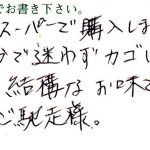 でお書き下さい。
スーパーで購入しま
で迷わずカゴに
結構なお味で
ご馳走様。